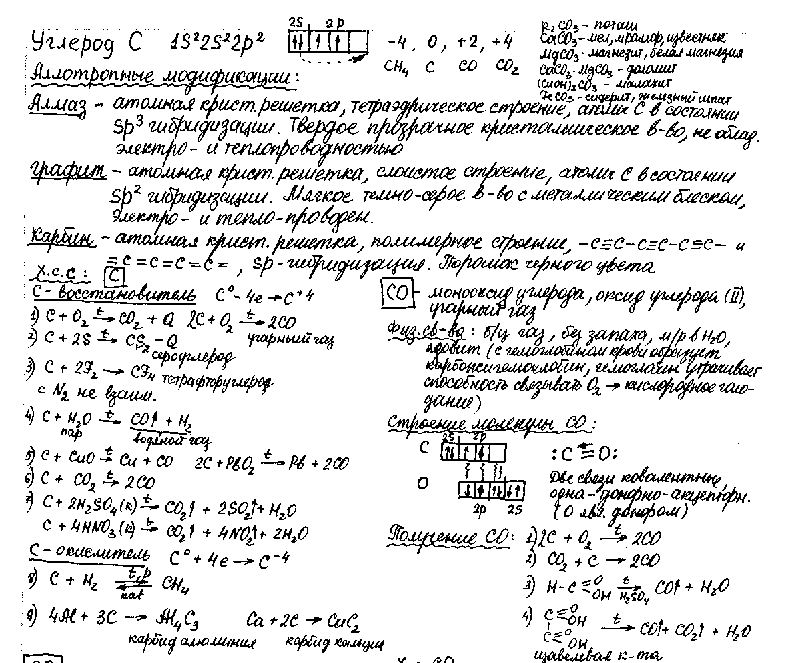 Углерод C 1S²2S²2p² 2S 2p -4, 0, +2, +4
CH₄ C CO CO₂
K₂CO₃ - поташ
CaCO₃ - мел, мрамор, известняк
MgCO₃ - магнезит, белая магнезия
CaCO₃·MgCO₃ - доломит
(CuOH)₂CO₃ - малахит
FeCO₃ - сидерит, железный шпат
Аллотропные модификации:
Алмаз - атомная крист. решетка, тетраэдрическое строение, атомы C в состоянии
Sp³ гибридизации. Твердое прозрачное кристаллическое в-во, не облад.
электро- и теплопроводностью
Графит - атомная крист. решетка, слоистое строение, атомы C в состоянии
Sp² гибридизации. Мягкое темно-серое в-во с металлическим блеском,
электро- и тепло-проводен.
Карбин - атомная крист. решетка, полимерное строение, -C≡C-C≡C-C≡C- и
=C=C=C=C=C=, Sp-гибридизация. Порошок черного цвета
Х.С.С.: C
C - восстановитель C⁰ - 4e → C⁺⁴
1) C + O₂ →t CO₂ + Q 2C + O₂ →t 2CO
угарный газ
2) C + 2S →t CS₂ - Q
сероуглерод
3) C + 2F₂ → CF₄ тетрафторуглерод
с N₂ не взаим.
4) C + H₂O →t CO↑ + H₂
пар водяной газ
5) C + CuO →t Cu + CO 2C + PbO₂ →t Pb + 2CO
6) C + CO₂ →t 2CO
7) C + 2H₂SO₄(к) →t CO₂↑ + 2SO₂↑ + H₂O
C + 4HNO₃(к) →t CO₂↑ + 4NO₂↑ + 2H₂O
C - окислитель C⁰ + 4e → C⁻⁴
8) C + H₂ ⇄ t, p kat CH₄
9) 4Al + 3C → Al₄C₃ Ca + 2C → CaC₂
карбид алюминия карбид кальция
CO - монооксид углерода, оксид углерода (II),
угарный газ
Физ. св-ва: б/ц газ, без запаха, м/р в H₂O,
ядовит (с гемоглобином крови образует
карбоксигемоглобин, гемоглобин утрачивает
способность связывать O₂ → кислородное голо-
дание)
Строение молекулы CO:
2S 2p
C :C≡O:
O Две связи ковалентные,
одна - донорно-акцепторн.
2p 2S (O явл. донором)
Получение CO: 1) 2C + O₂ →t 2CO
2) CO₂ + C → 2CO
3) H-C =O OH →t H₂SO₄ CO↑ + H₂O
4) C =O OH C =O OH →t CO↑ + CO₂↑ + H₂O
щавелевая к-та